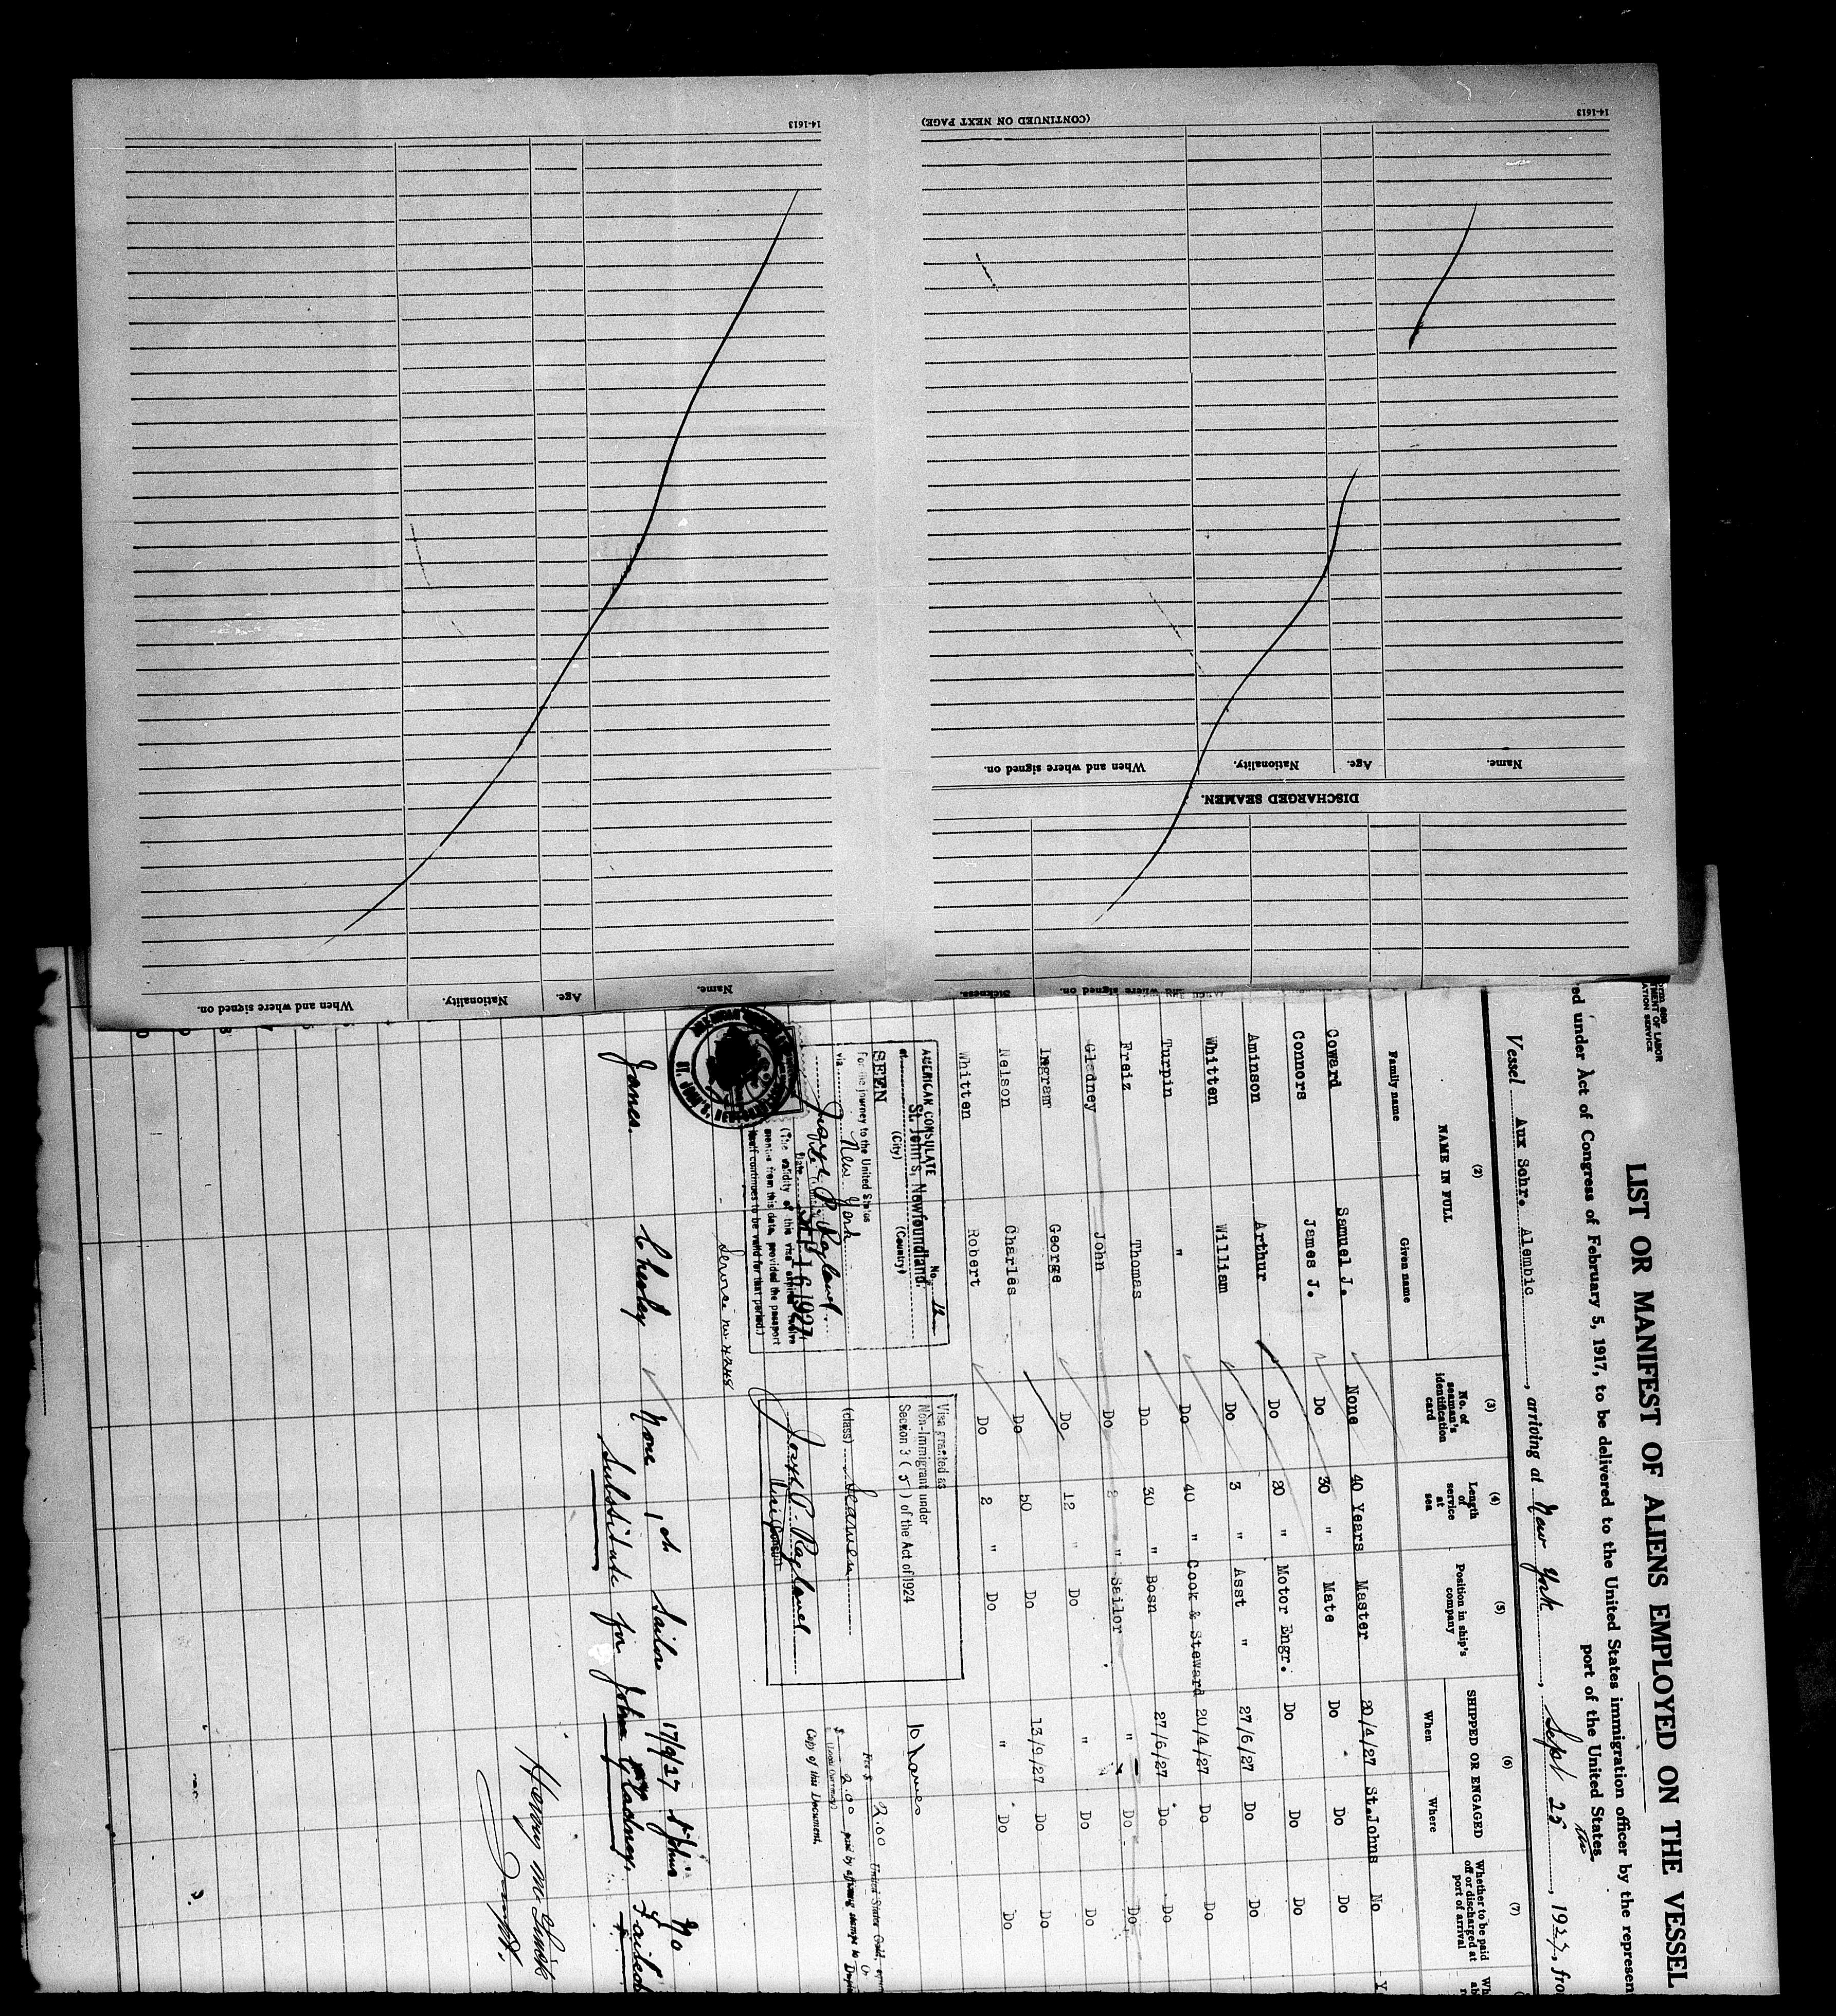 14-1613
(CONTINUED ON NEXT PAGE)
14-1613
When and where signed on.
Nationality.
Age.
Name.
DISCHARGED SEAMEN.
Name.
Age.
Nationality.
When and where signed on.
Name.
Age.
Nationality.
When and where signed on.
Sickness.
LIST OR MANIFEST OF ALIENS EMPLOYED ON THE VESSEL
ed under Act of Congress of February 5, 1917, to be delivered to the United States immigration officer by the represen
port of the United States
Vessel Aux Schr. Alembic, arriving at New York, Sept 25, 1927, fro
(2) (3) (4) (5) (6) (7)
NAME IN FULL
Family name Given name
No. of seaman's identification card
Length of service at sea
Position in ship's company
SHIPPED OR ENGAGED
When Where
Whether to be paid off or discharged at port of arrival
Coward Samuel J. None 40 Years Master 20/4/27 St.Johns No
Connors James J. Do 30 " Mate Do Do Do
Aminson Arthur Do 20 " Motor Engr. Do Do Do
Whitten William Do 3 " Asst " 27/6/27 Do Do
Turpin " Do 40 " Cook & Steward 20/4/27 Do Do
Freiz Thomas Do 30 " Bosn 27/6/27 Do Do
Gladney John Do 2 " Sailor " Do Do
Ingram George Do 12 " Do " Do Do
Nelson Charles Do 50 Do 13/9/27 Do Do
Whitten Robert Do 2 " Do " Do Do
AMERICAN CONSULATE No. 12
at St. John's, Newfoundland.
(City) (Country)
SEEN
For the journey to the United States
via New York
Joseph P. Ragland
Date SEP 16 1927
(The validity of this visa expires twelve
months from this date, provided the passport
itself continues to be valid for that period.)
Service no 4248
Visa granted as
Non-Immigrant under
Section 3 (5) of the Act of 1924
(class) Seamen
Joseph P. Ragland
Vice Consul
10 Names
Fee $ 2.00 United States Gold,
$ 2.00 paid by affixing stamps to
(Local Currency)
Copy of this Document.
Jones. Chesley None Sailor 17/9/27 St Johns No
Substitute for John Gladney. Failed